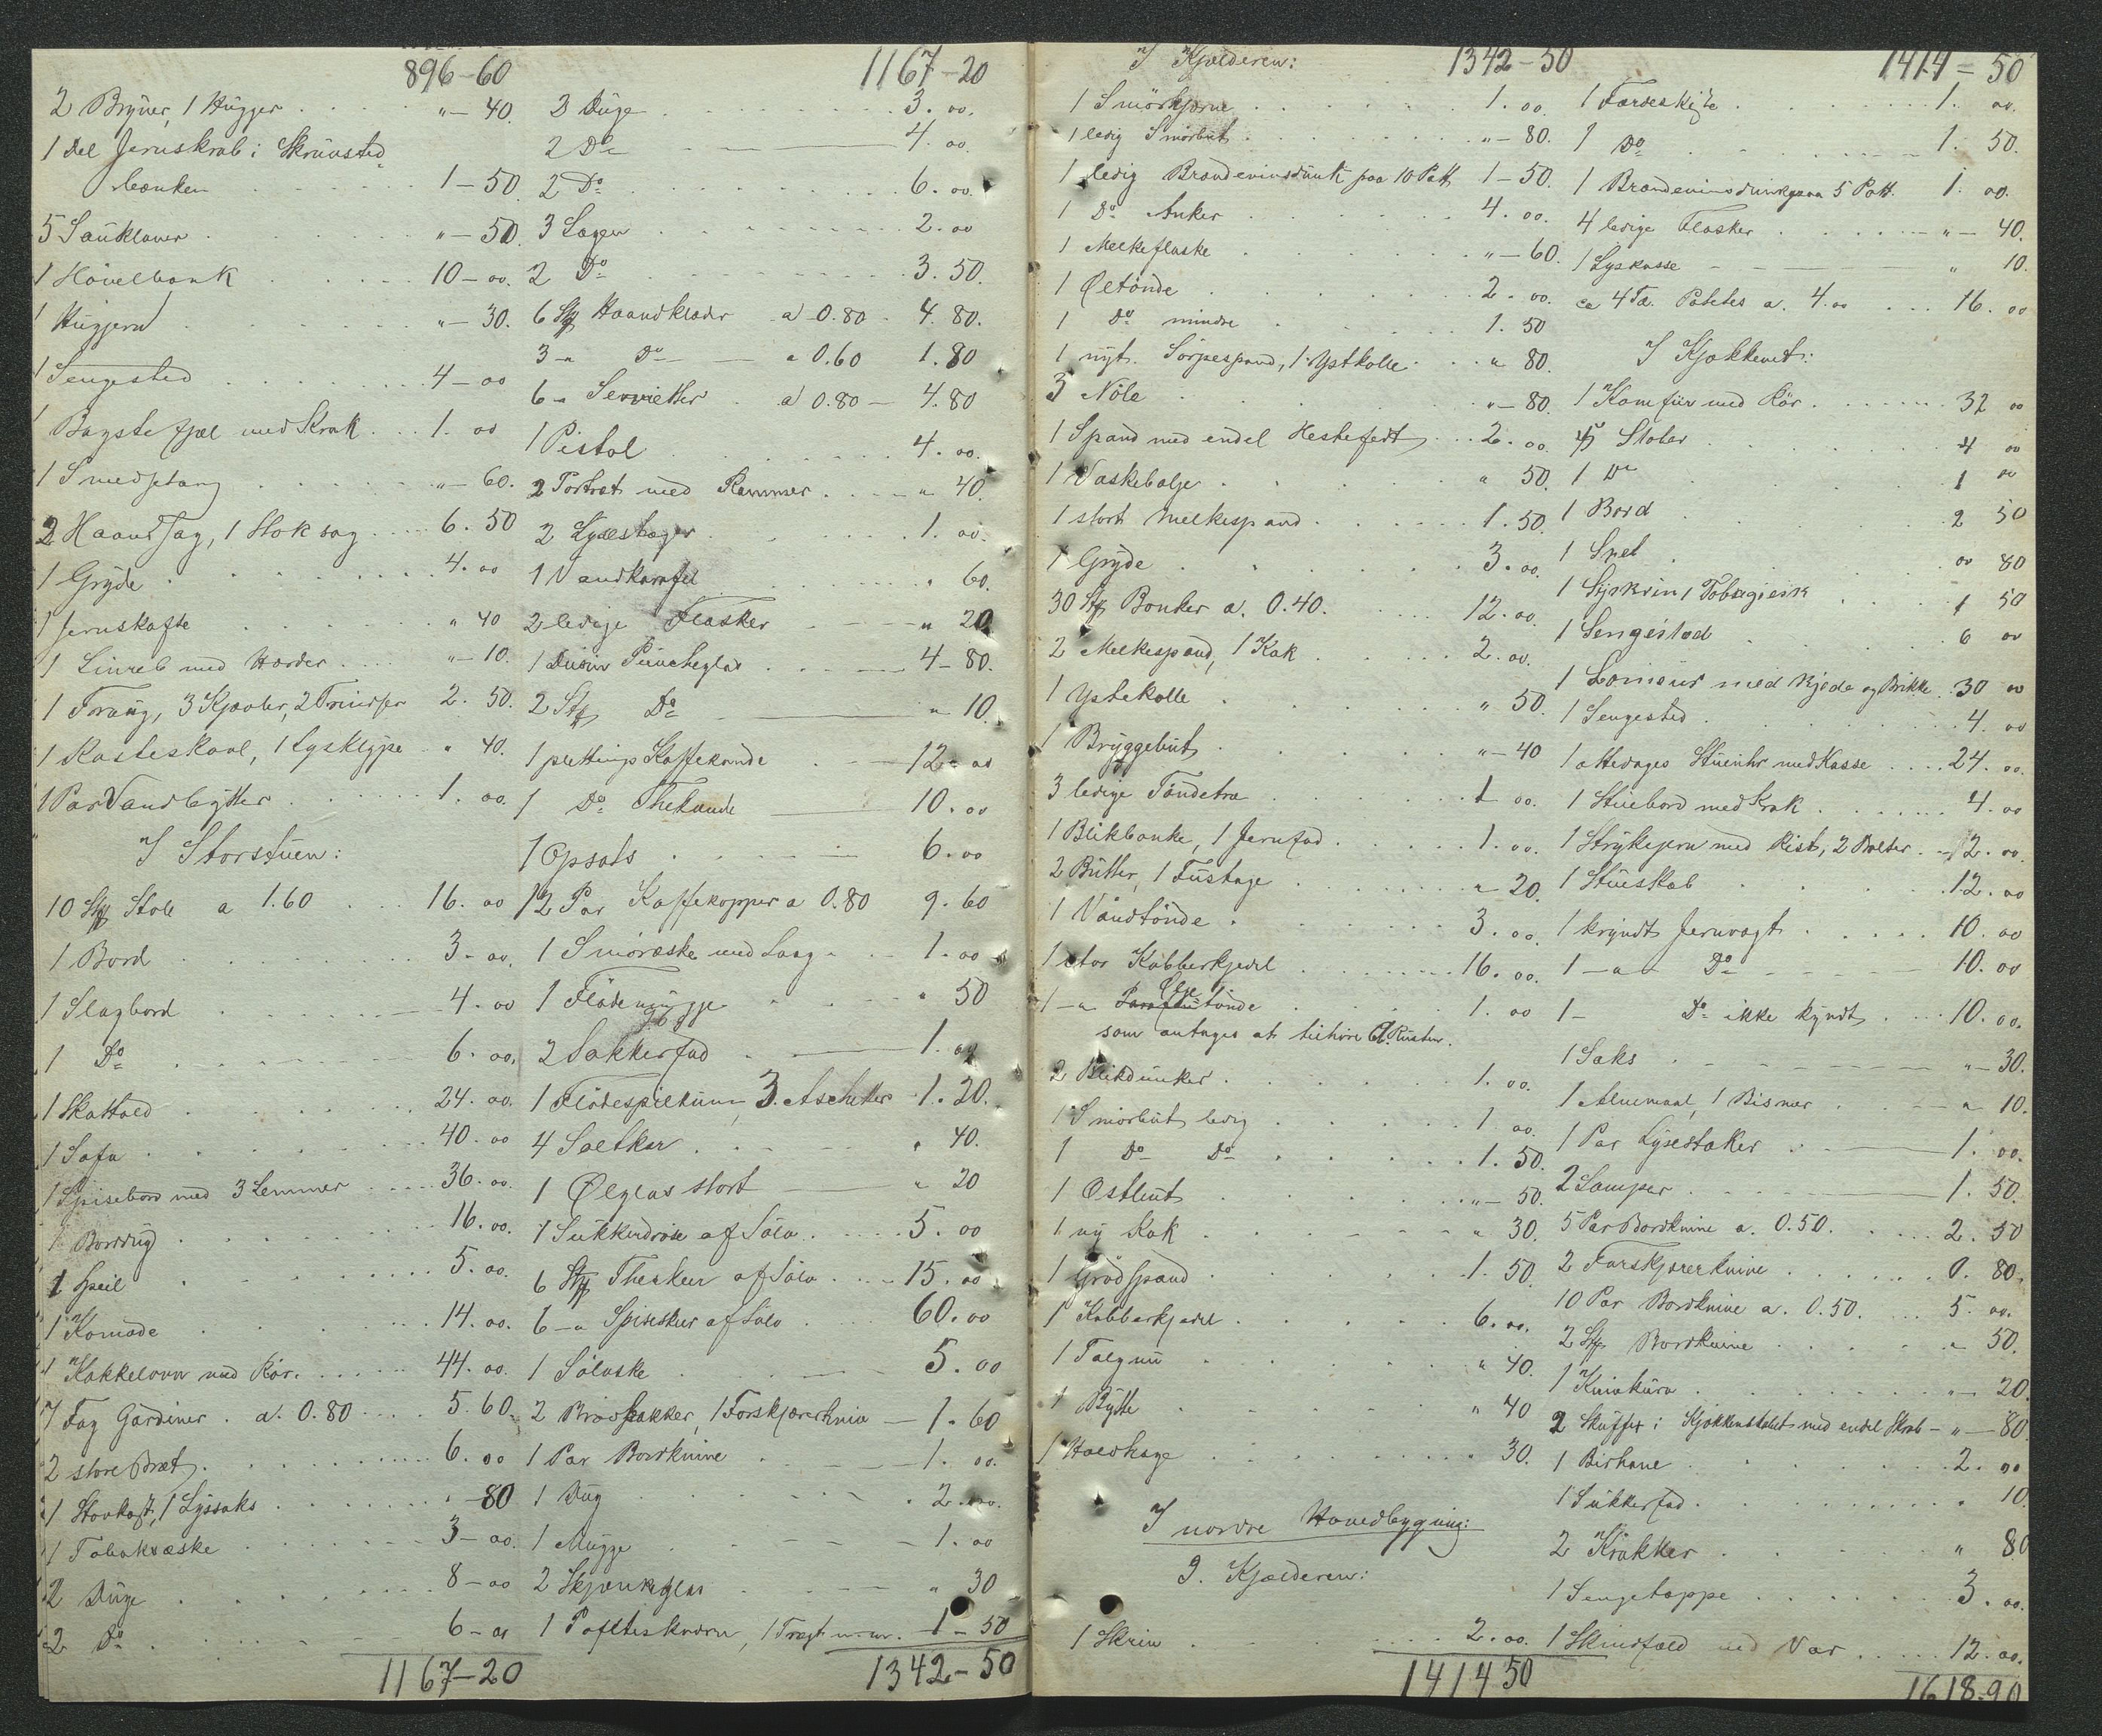 896-60
2 Bryner, 1 Hugger . . . . "-40.
1 Del Jernskrab i Skruvsted-
bænken . . . . 1-50
5 Sauklaver . . . . "-50.
1 Hövelbænk . . . . 10-00.
1 Hugjern . . . . "-30.
1 Sengested . . . . 4-00
1 Bagstefjæl med Krak . . . 1.00
1 Smedjetang . . . . "-60.
2 Haandsag, 1 Stoksag . . . 6.50
1 Gryde . . . . 4.00
1 Jernskafte . . . . " 40
1 Linreb med Harder . . . . "-10.
1 Traug, 3 Kjæver, 2 Trindser 2.50.
1 Kasteskovl, 1 Lysklype " 40.
1 Par Vandbytter . . . . 1.00.
I Storstuen:
10 Stk Stole a 1.60 . . . 16.00
1 Bord . . . . 3-00.
1 Slagbord . . . . 4.00
1 Do . . . . 6.00.
1 Skattoll . . . . 24.00.
1 Sofa . . . . 40.00
1 Spisebord med 3 Lemmer . . . . 36.00.
1 Borddug . . . . 16.00.
1 Speil . . . . 5.00.
1 Komode . . . . 14.00.
1 Kakkelovn med Rör. . . . 44.00.
7 Fag Gardiner. a. 0.80 . . . 5.60.
2 store Bræt. . . . . 6.00
1 Stovkost, 1 Lyssaks . . . . "-80
1 Tobaksæske . . . . 3-00.
2 Duge . . . . 8-00
2 Do . . . . 6-00
1167-20
1167-20
3 Duge . . . . 3.00.
2 Do . . . . 4.00.
2 Do . . . . 6.00.
3 Lagen . . . . 2.00
2 Do . . . . 3.50.
6 Stk Haandklæder a 0.80 - 4.80.
3 -"- Do - a 0.60 1.80
6 -" Servietter . a 0.80 - 4.80
1 Pistol . . . . 4.00.
2 Portræt med Rammer . . . . " 40.
2 Lysestager . . . . 1.00.
1 Vandkaraffel . . . . " 60.
2 ledige Flasker . . . . " 20.
1 Dusin Puncheglas . . . . 4-80.
2 Stk Do . . . . " 10.
1 pletting Kaffekande . . . 12-00
1 Do Thekande . . . 10.00
1 Opsats . . . . 6.00
12 Par Kaffekopper a 0.80 9.60
1 Smöræske med Laag . . . 1.00
1 Flödemugge . . . . " 50
2 Sukkerfad . . . . 1.00
1 Flödespilkum 3 Aschetter 1.20.
4 Saltkar . . . . " 40.
1 Ølglas stort . . . . " 20
1 Sukkerdaase af Sölv . . . . 5.00
6 Stk Theskeer af Sölv . . . 15.00
6 -" Spiseskeer af Sölv . . . . 60.00
1 Sölvske . . . . 5.00
2 Brödbakker, 1 Forskjærerkniv - 1.60
1 Par Bordknive . . . . 1.00.
1 Dug . . . . 2.00.
1 Mugge . . . . 1.00
2 Skjænkeglas . . . . " 30
1 Kaffekværn, 1 Tragt m. m. 1-50
1342-50
I Kjælderen: 1342-50
1 Smörkjerne . . . . 1.00.
1 ledig Smörbut . . . . "-80.
1 ledig Brændevinsdunk paa 10 Pott 1-50.
1 Do Anker . . . . 4.00.
1 Melkeflaske . . . . "-60.
1 Øltönde . . . . 2.00.
1 Do mindre . . . . 1.50
1 nyt Sörpespand, 1 Ystkolle . . " 80.
3 Nöle . . . . "-80.
1 Spand med endel Hestefedt . . . 2.00.
1 Vaskebalje . . . . " 50.
1 stort Melkespand . . . . 1.50.
1 Gryde . . . . 3.00.
30 Stk Bonker a. 0.40. . . . 12.00.
2 Melkespand, 1 Kak . . . . 2.00.
1 Ystekolle . . . . " 50.
1 Bryggebut . . . . "-40
3 ledige Töndetræ . . . . 1 00.
1 Blikbonke, 1 Jernfad . . . . 1.00.
2 Bütter, 1 Fustage . . . . " 20.
1 Vandtönde . . . . 3.00.
1 stor Kobberkjedel . . . . 16.00.
1 -" Øl tönde . . . . 1.00
som antages at tilhöre A. Rusten.
2 Blikdunker . . . . 1.00.
1 Smörbut ledig . . . . 1 00.
1 Do Do . . . . 1.50.
1 Ostbut . . . . "-50.
1 ny Kak . . . . " 30.
1 Grödspand . . . . 1.50.
1 Kobberkjedel . . . . 6.00.
1 Talgnu . . . . " 40.
1 Bytte . . . . " 40
1 Haovhage . . . . " 30.
I nordre Hovedbygning:
I. Kjælderen:
1 Skrin . . . . 2.00.
1414 50
1414-50
1 Færdeskjte . . . . 1. 00.
1 Do . . . . 1. 50.
1 Brændevinsdunk paa 5 Pott. 1. 00.
4 ledige Flasker . . . . "- 40.
1 Lyskasse . . . . " 10.
ca 4 Td. Potetes a. 4.00 . . . 16.00
I Kjøkkenet:
1 Komfür med Rör . . . . 32 00
4 Stoler . . . . 4 00
1 Do . . . . 1 00
1 Bord . . . . 2 50
1 Spel . . . . 00 80
1 Syskrin 1 Tobagiesk . . . . 1 50
1 Sengestod . . . . 6 00
1 Lomeur med Kjede og Brikke . 30 00
1 Sengested . . . . 4. 00
1 ottedages Stueuhr med Kasse . . . . 24. 00.
1 Stuebord med Krak . . . . 4. 00
1 Strykejern med Rist, 2 Bolter . . 2. 00.
1 Stueskab . . . . 12. 00
1 kryndt Jernvogt . . . . 10. 00
1 -"- Do . . . . 10. 00
1 - Do ikke kyndt . . . 10. 00.
1 Saks . . . . "-30.
1 Alnemaal, 1 Bismer . . . " 10.
1 Par Lysestaker . . . . 1. 00.
2 Lamper . . . . 1. 50.
5 Par Bordknive a. 0.50. . . . 2. 50
2 Forskjærerknive . . . . 0. 80.
10 Par Bordknive a. 0.50. . . . 5. 00.
2 Stk Bordknive . . . . " 50.
1 Knivkurv . . . . "- 20.
2 Skuffer i Kjøkkenskabet med endel Skrab - "-80.
1 Birhane . . . . 2. 00
1 Sukkerfad . . . . " 10.
2 Krakker . . . . " 80
1 Sengetæppe . . . . 3. 00.
1 Skindfæld med Var . . . . 12. 00.
1618-90